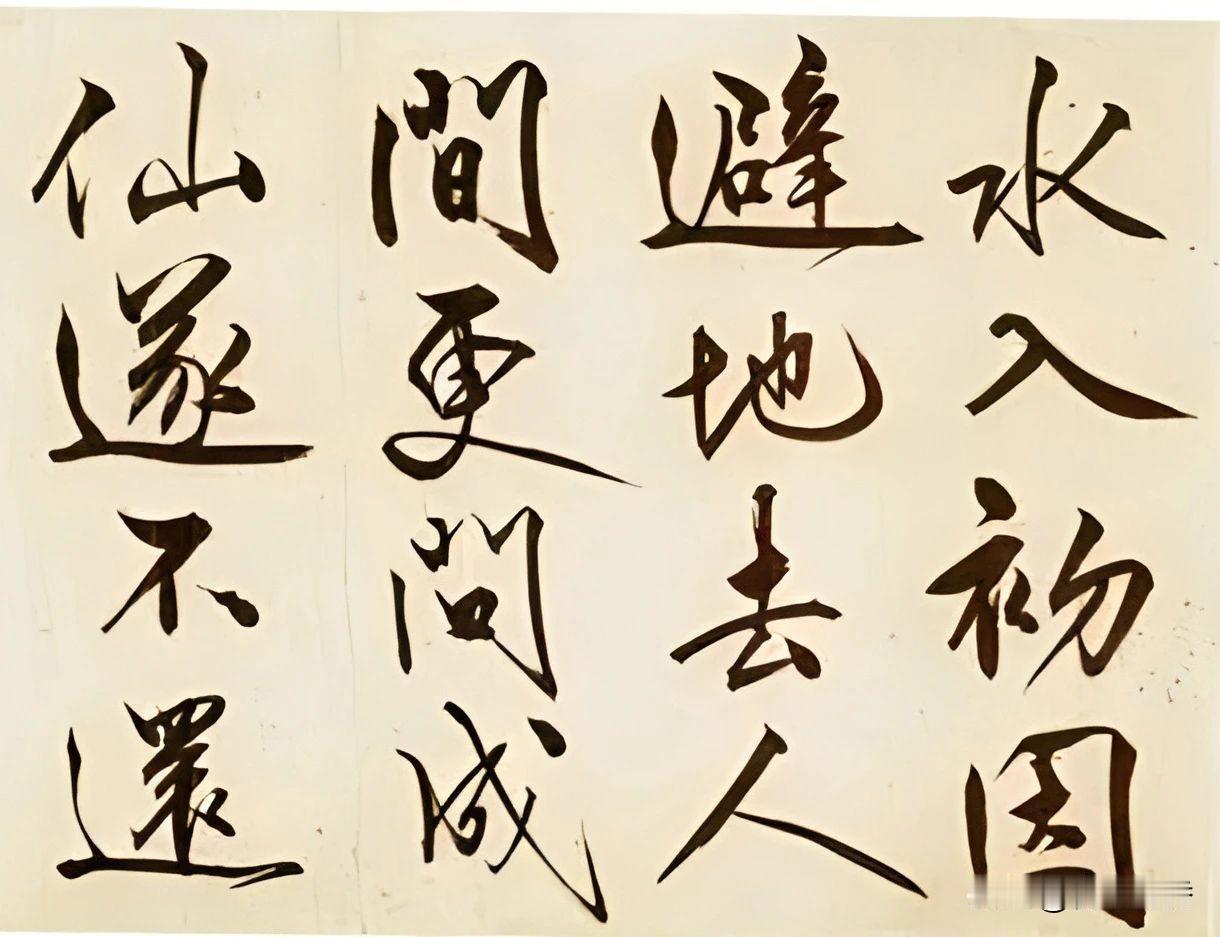 水入初因
避地去人
間更問成
仙遂不還